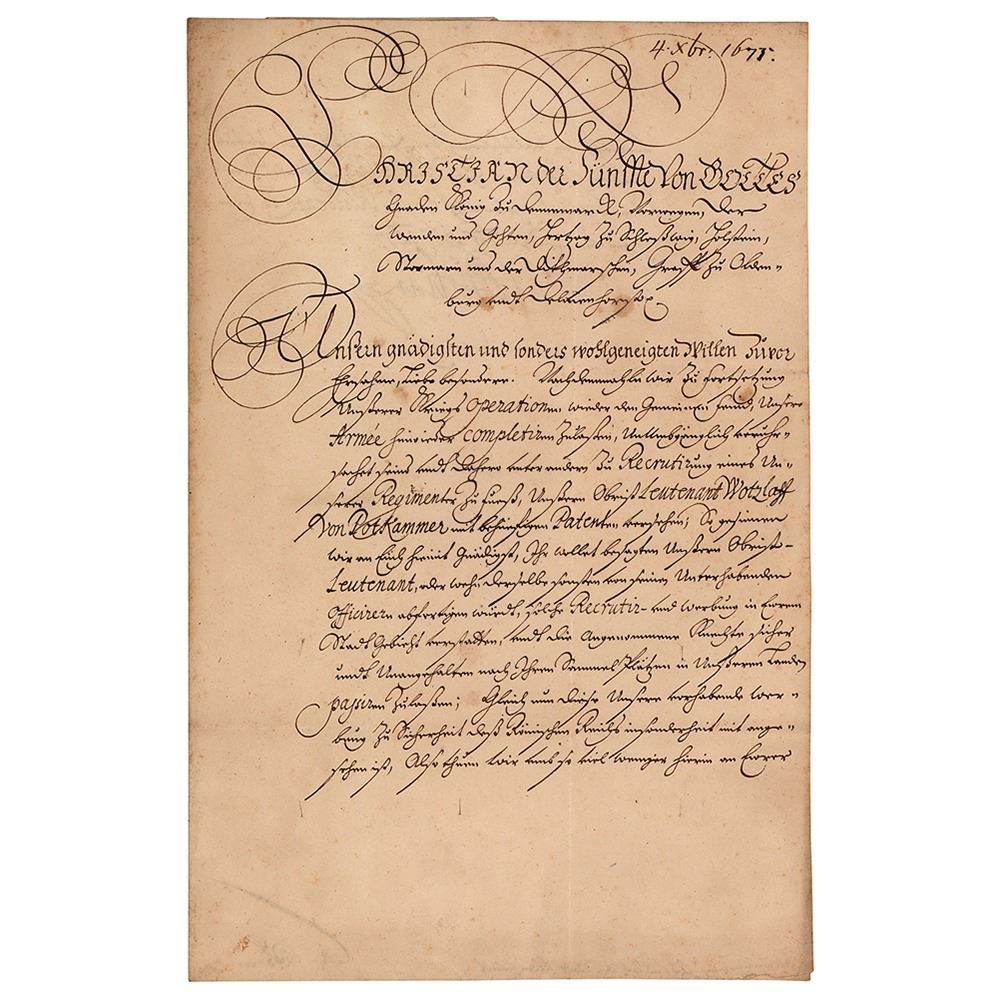 4. Xbr: 1675.
CHRISTIAN der Fünffte Von GOTTES
Gnaden König Zu Dennemarck, Norwegen, Der
Wenden und Gohten, Hertzog Zu Schleßwig, Holstein,
Stormarn und der Dithmarschen, Graff Zu Olden-
burg undt Delmenhorst
Unsern gnädigsten und sonders wohlgeneigten Willen Zuvor
Ehrsahme, Liebe besondere. Nachdemmahln wir Zu Fortsetzung
Unserer Kriegs Operationen wieder den Gemeinen Feind, Unsere
Armée hinwieder completiren Zulaßen, Unumbgänglich veruhr-
sachet seind undt Dahero unter andern Zu Recrutirung eines Un-
serer Regimenter Zu Fueß, Unsern Obrist Leutenant Wotzlaff
Von Potkammer mit behueffigen Patenten versehen; So gesinnen
wir an Euch hiemit Gnädigst, Ihr wollet besagten Unsern Obrist-
Leutenant, oder wehn derselbe sonsten von seinen Unterhabenden
Officiren abfertigen würdt, solche Recrutir- und Werbung in Eurem
Stadt Gebieht verstatten, undt die Angenommene Knechte sicher
undt Unangehalten nach Ihren Sammel Plätzen in Unserem Landen
passiren Zulaßen; Gleich nun diese Unsere vorhabende Wer-
bung Zu Sicherheit deß Römischen Reichs insonderheit mit ange-
sehen ist, Also thuen wir uns so viel weniger hierin an Eurer